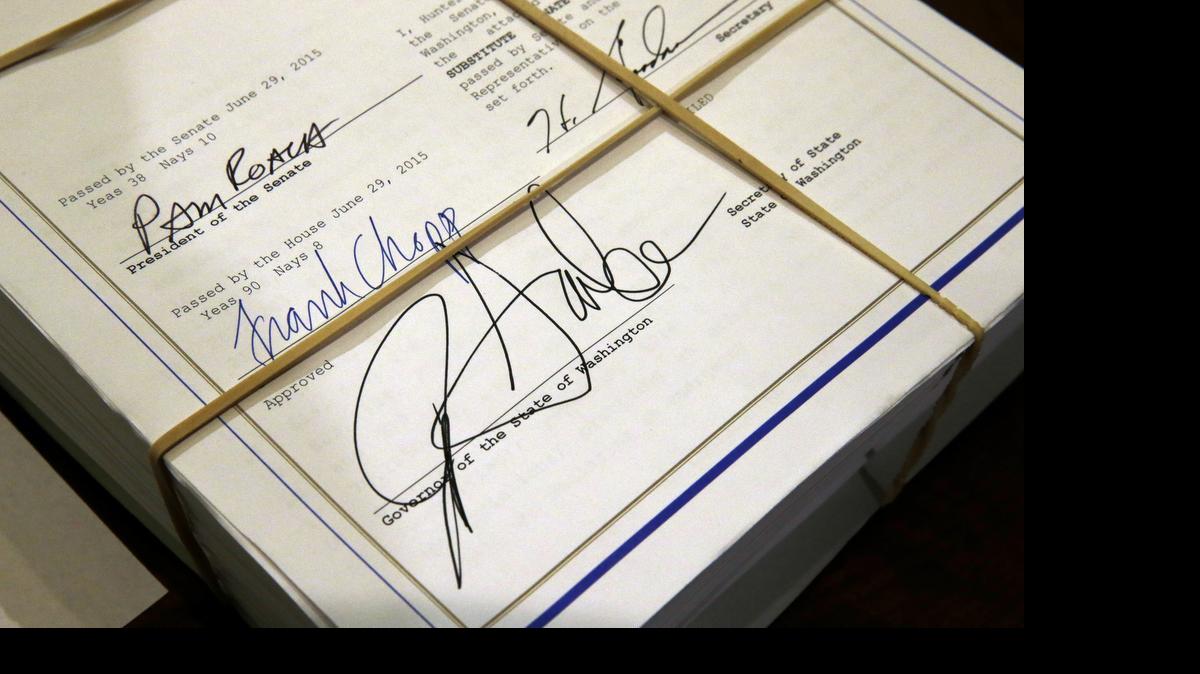 Passed by the Senate June 29, 2015
Yeas 38 Nays 10
PAM ROACH
President of the Senate
Passed by the House June 29, 2015
Yeas 90 Nays 8
Frank Chopp
Approved
Governor of the State of Washington
I, Hunte
the Sena
Washington,
the attac
SUBSTITUTE NATE
passed by Se and
Representati on the
set forth.
H.
Secretary
ILED
Secret y of State
State Washington